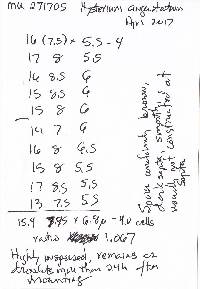 MU 271705 Hysterium angustatum
Apr 2017
16 (7.5) × 5.5 - 4
17 8 5.5
16 8.5 6
15 8.5 6
15 8 6
14 7 6
16 8 6.5
15 8 5.5
17 8.5 5.5
13 7.5 5.5
15.4 × 6.8µ - 4.0 cells
ratio 1.067
Highly , remains
absolute more than 24h after
mounting
Spore uniformly brown,
dark septa, smooth,
usually not constricted at
septa